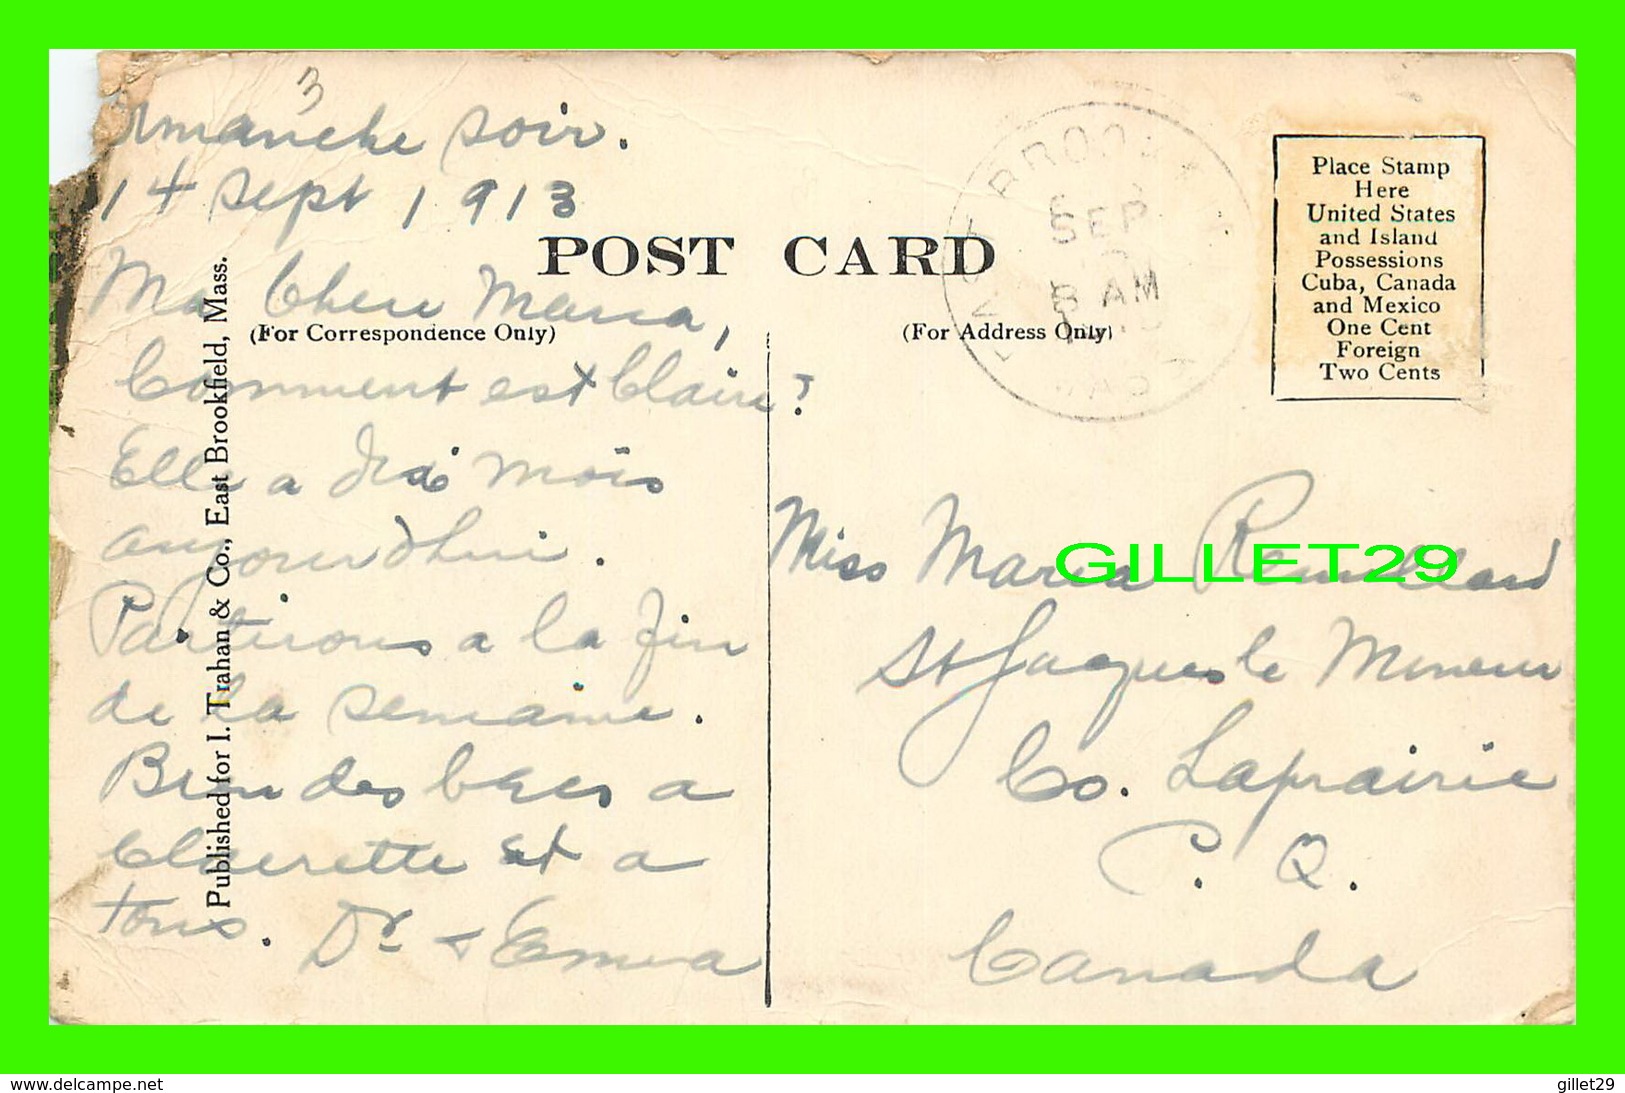 3
manche soir.
14 Sept 1913
Ma Chere Maria,
Comment est Claire?
Elle a dix mois
aujourd'hui.
Partirons a la fin
de la semaine.
Bien des becs a
Clairette et a
tous. Dr & Emma
POST CARD
(For Correspondence Only)
Published for I. Trahan & Co., East Brookfield, Mass.
(For Address Only)
SEP
8 AM
Place Stamp
Here
United States
and Island
Possessions
Cuba, Canada
and Mexico
One Cent
Foreign
Two Cents
Miss Maria Remillard
St Jacques le Mineur
Co. Laprairie
P. Q.
Canada
GILLET29
www.delcampe.net
gillet29